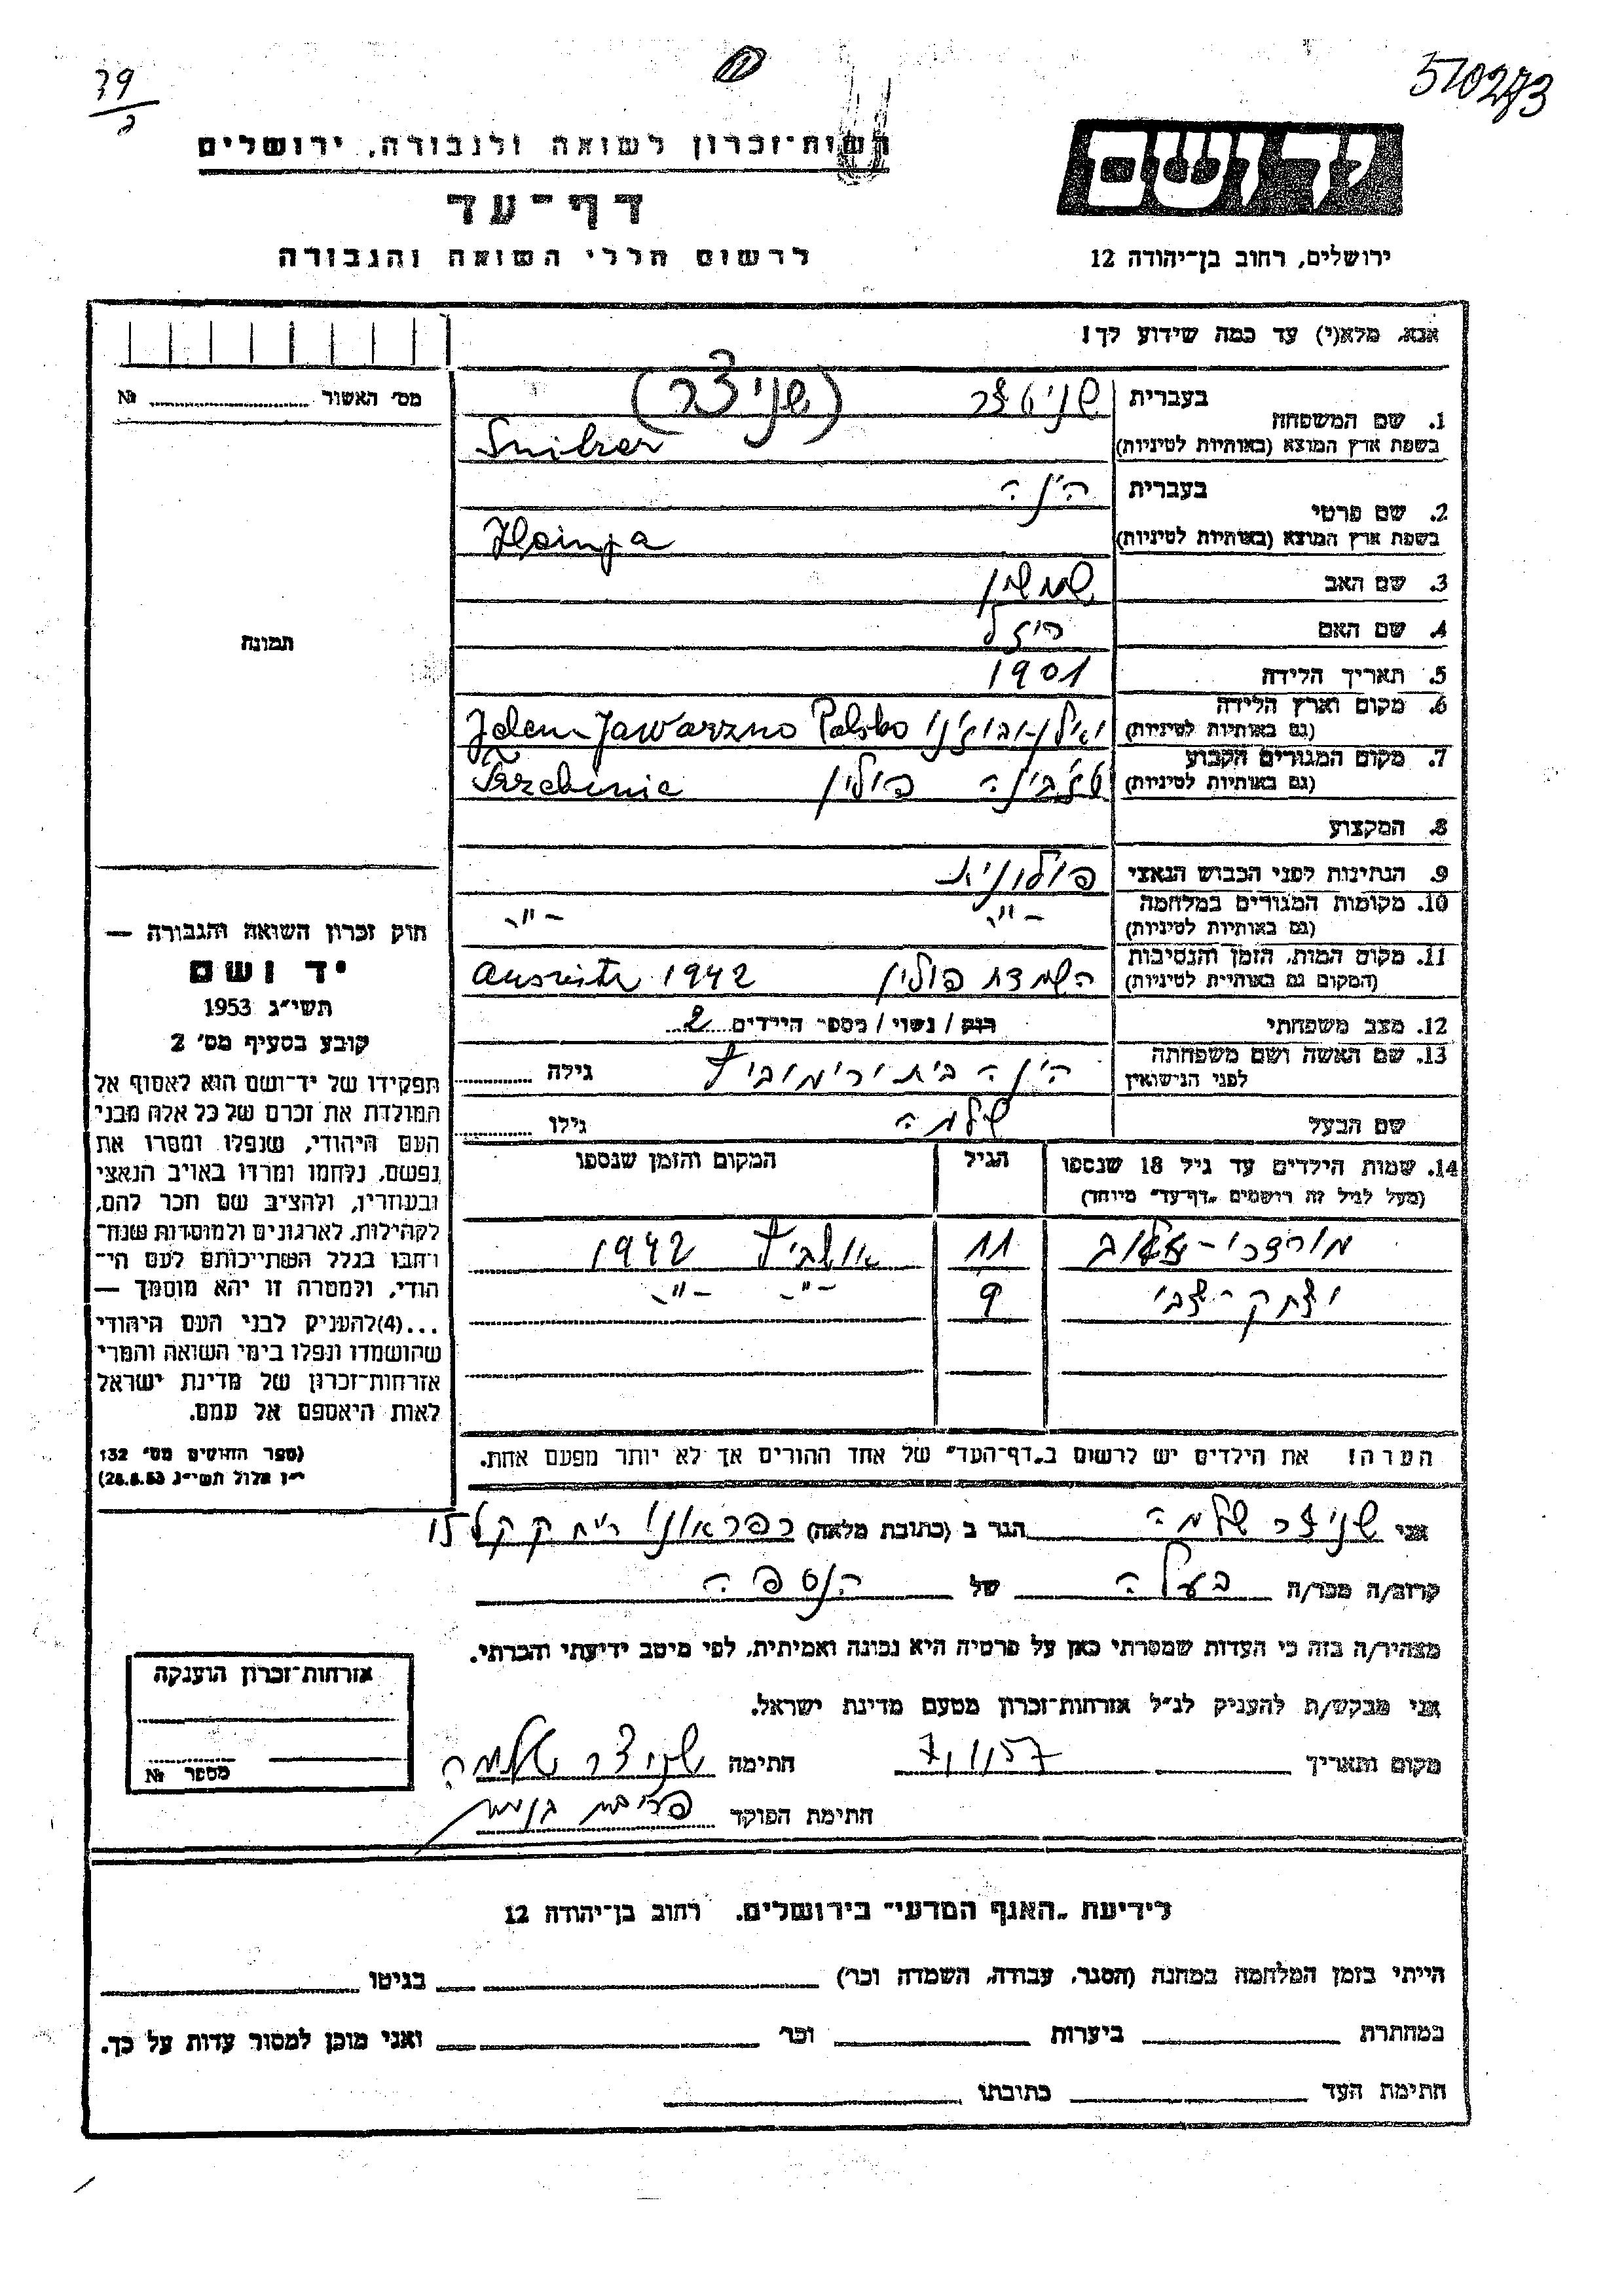 39
510273
רשות־זכרון לשואה ולגבורה, ירושלים
יד ושם
דף־עד
לרשום חללי השואה והגבורה
ירושלים, רחוב בן־יהודה 12
אנא, מלא(י) עד כמה שידוע לך!
מס' האשור № 
1. שם המשפחה
בעברית שניטצר (שניצר)
בשפת ארץ המוצא (באותיות לטיניות) Snitzer
2. שם פרטי
בעברית הינה
בשפת ארץ המוצא (באותיות לטיניות)
3. שם האב שמשון
4. שם האם היזל
5. תאריך הלידה 1901
6. מקום וארץ הלידה
(גם באותיות לטיניות) Jelen-Jawarzno Polsko
7. מקום המגורים הקבוע
(גם באותיות לטיניות) טשבינה פולין Trzebinie
8. המקצוע
9. הנתינות לפני הכבוש הנאצי פולונית
10. מקומות המגורים במלחמה -"- -"-
(גם באותיות לטיניות)
11. מקום המות, הזמן והנסיבות
(המקום גם באותיות לטיניות) השמדה פולין 1942
12. מצב משפחתי רוק / נשוי / מספר הילדים 2
13. שם האשה ושם משפחתה
לפני הנישואין הינה בית ורימוביץ גילה
שם הבעל שלמה גילו
14. שמות הילדים עד גיל 18 שנספו הגיל המקום והזמן שנספו
(מעל לגיל זה רושמים „דף־עד" מיוחד)
מורדכי- 11 1942
יצחק-צבי 9 -"- -"-
הערה! את הילדים יש לרשום ב„דף־העד" של אחד ההורים אך לא יותר מפעם אחת.
תמונה
חוק זכרון השואה והגבורה —
יד ושם
תשי"ג 1953
קובע בסעיף מס' 2
תפקידו של יד־ושם הוא לאסוף אל
המולדת את זכרם של כל אלה מבני
העם היהודי, שנפלו ומסרו את
נפשם, נלחמו ומרדו באויב הנאצי
ובעוזריו, ולהציב שם וזכר להם,
לקהילות, לארגונים ולמוסדות שנח־
רבו בגלל השתייכותם לעם הי־
הודי, ולמטרה זו יהא מוסמך —
...(4)להעניק לבני העם היהודי
שהושמדו ונפלו בימי השואה והמרי
אזרחות־זכרון של מדינת ישראל
לאות היאספם אל עמם.
(ספר החוקים מס' 132
י"ז אלול תשי"ג 28.8.53)
אני שניצר שלמה הגר ב (כתובת מלאה)
קרוב/ה מכר/ה בעלה של הנספה
מצהיר/ה בזה כי העדות שמסרתי כאן על פרטיה היא נכונה ואמיתית, לפי מיטב ידיעתי והכרתי.
אני מבקש/ת להעניק לנ"ל אזרחות־זכרון מטעם מדינת ישראל.
מקום ותאריך 7/1/57 חתימה שניצר שלמה
חתימת הפוקד
אזרחות־זכרון הוענקה
מספר №
לידיעת „האגף המדעי" בירושלים, רחוב בן־יהודה 12
הייתי בזמן המלחמה במחנה (הסגר, עבודה, השמדה וכו') בגיטו
במחתרת ביערות וכו' ואני מוכן למסור עדות על כך.
חתימת העד כתובתו